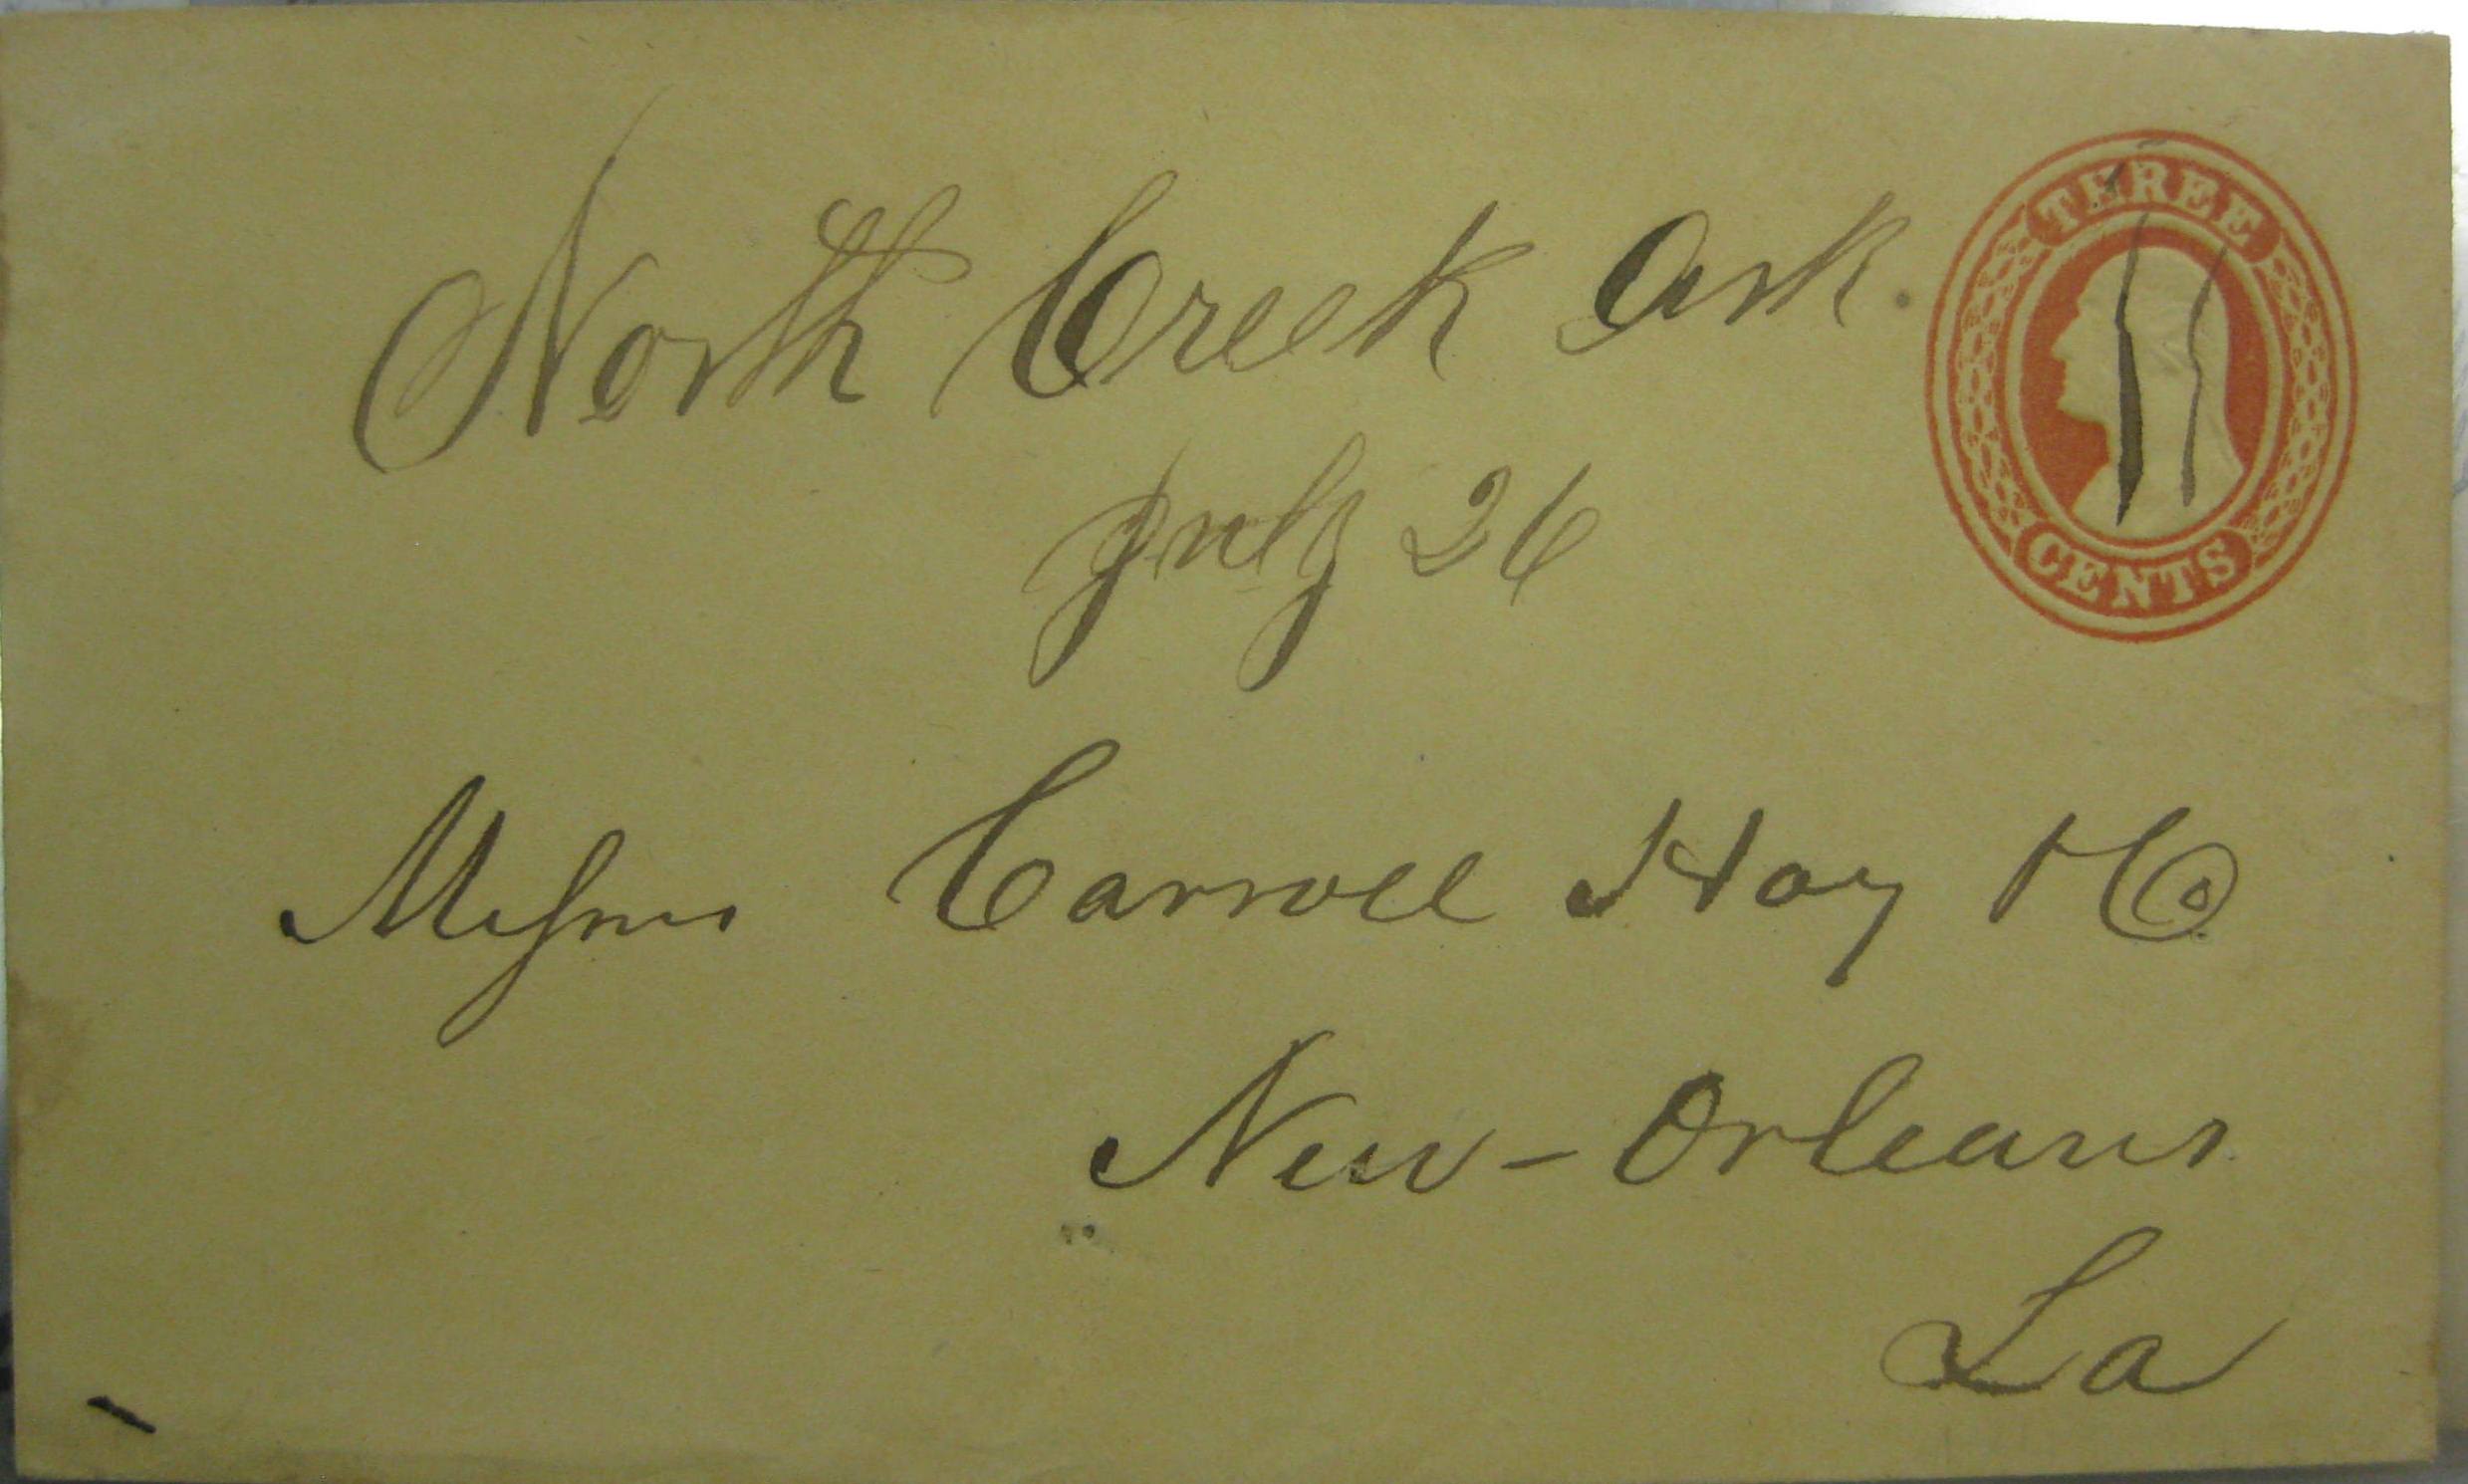 North Creek Ark.
THREE
July 26
CENTS
Messrs Carroll Hoy & Co
New-Orleans
La